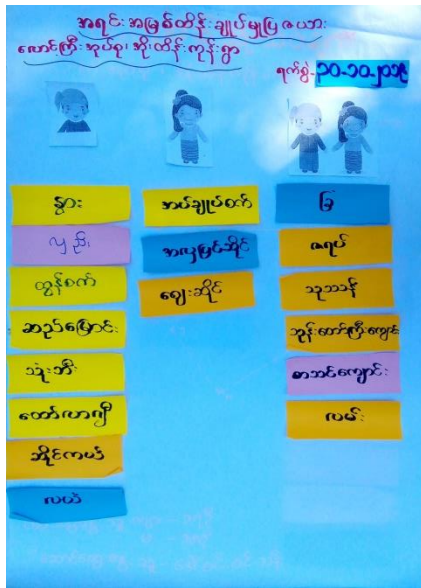 အရင်းအမြစ်ထိန်းချုပ်မှုပြဇယား
လောင်ကြီးအုပ်စု၊ အိုးတိန်ကုန်းရွာ
ရက်စွဲ-၃၀-၁၀-၂၀၁၉
နွား
လှည်း
ထွန်စက်
ဆည်မြောင်း
သုံးဘီး
တော်လာဂျီ
ဆိုင်ကယ်
လယ်
အပ်ချုပ်စက်
အလှပြင်ဆိုင်
ဈေးဆိုင်
ခြံ
ဇရပ်
သုဿန်
ဘုန်းတော်ကြီးကျောင်း
စာသင်ကျောင်း
လမ်း